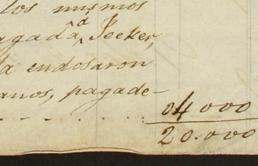 los mismos
agada á Jecker,
la endosaron
anos, pagade-
. . . . . 04 000
20.000